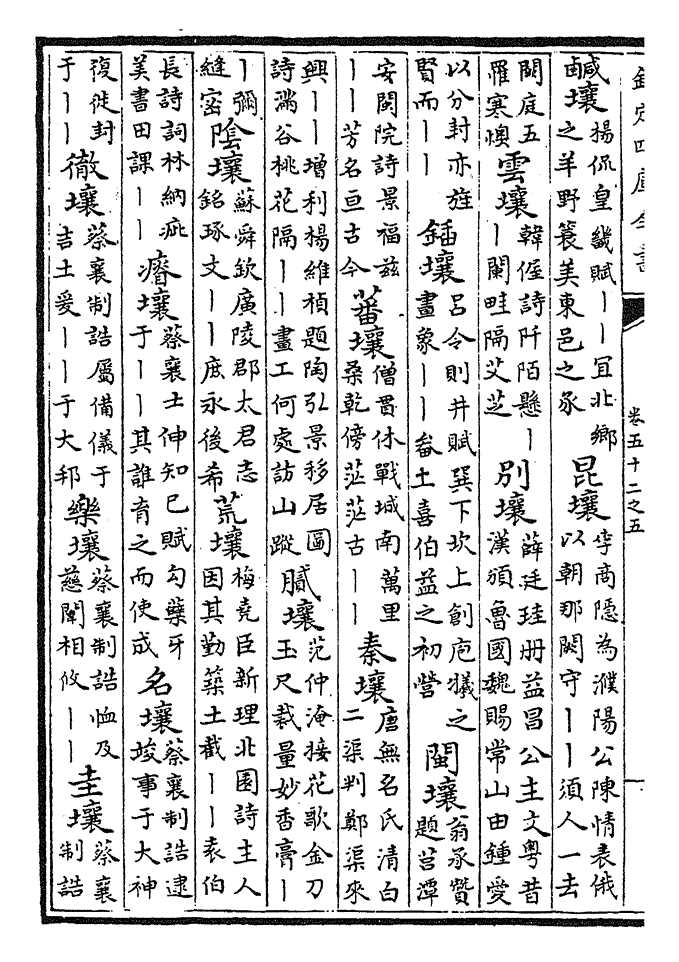 欽定四庫全書
卷五十二之五
一
鹹壤楊侃皇畿賦丨丨宜北鄉之羊野蓑美東邑之豕昆壤李商隱為濮陽公陳情表俄以朝那闕守丨丨須人一去
闕庭五羅寒燠雲壤韓偓詩阡陌懸丨丨闌畦隔艾芝別壤薛廷珪册益昌公主文粤昔漢頒魯國魏賜常山由鍾愛
以分封亦旌賢而丨丨鍤壤呂令則井賦巽下坎上創庖犧之畫象丨丨畚土喜伯益之初營閩壤翁承贊題莒潭
安閩院詩景福兹丨丨芳名亘古今蕃壤僧貫休戰城南萬里桑乾傍茫茫古丨丨秦壤唐無名氏清白二渠判鄭渠來
興丨丨增利楊維楨題陶弘景移居圖詩滿谷桃花隔丨丨畫工何處訪山蹤膩壤范仲淹接花歌金刀玉尺裁量妙香膏丨
丨彌縫密陰壤蘇舜欽廣陵郡太君志銘琢文丨丨庶永後希荒壤梅堯臣新理北園詩主人因其勤築土截丨丨表伯
長詩詞林納疵美書田課丨丨瘠壤蔡襄士伸知已賦勾蘖牙于丨丨其誰育之而使成名壤蔡襄制誥逮竣事于大神
復徙封于丨丨徹壤蔡襄制誥屬備儀于吉土爰丨丨于大邦樂壤蔡襄制誥恤及慈闈相攸丨丨圭壤蔡襄制誥